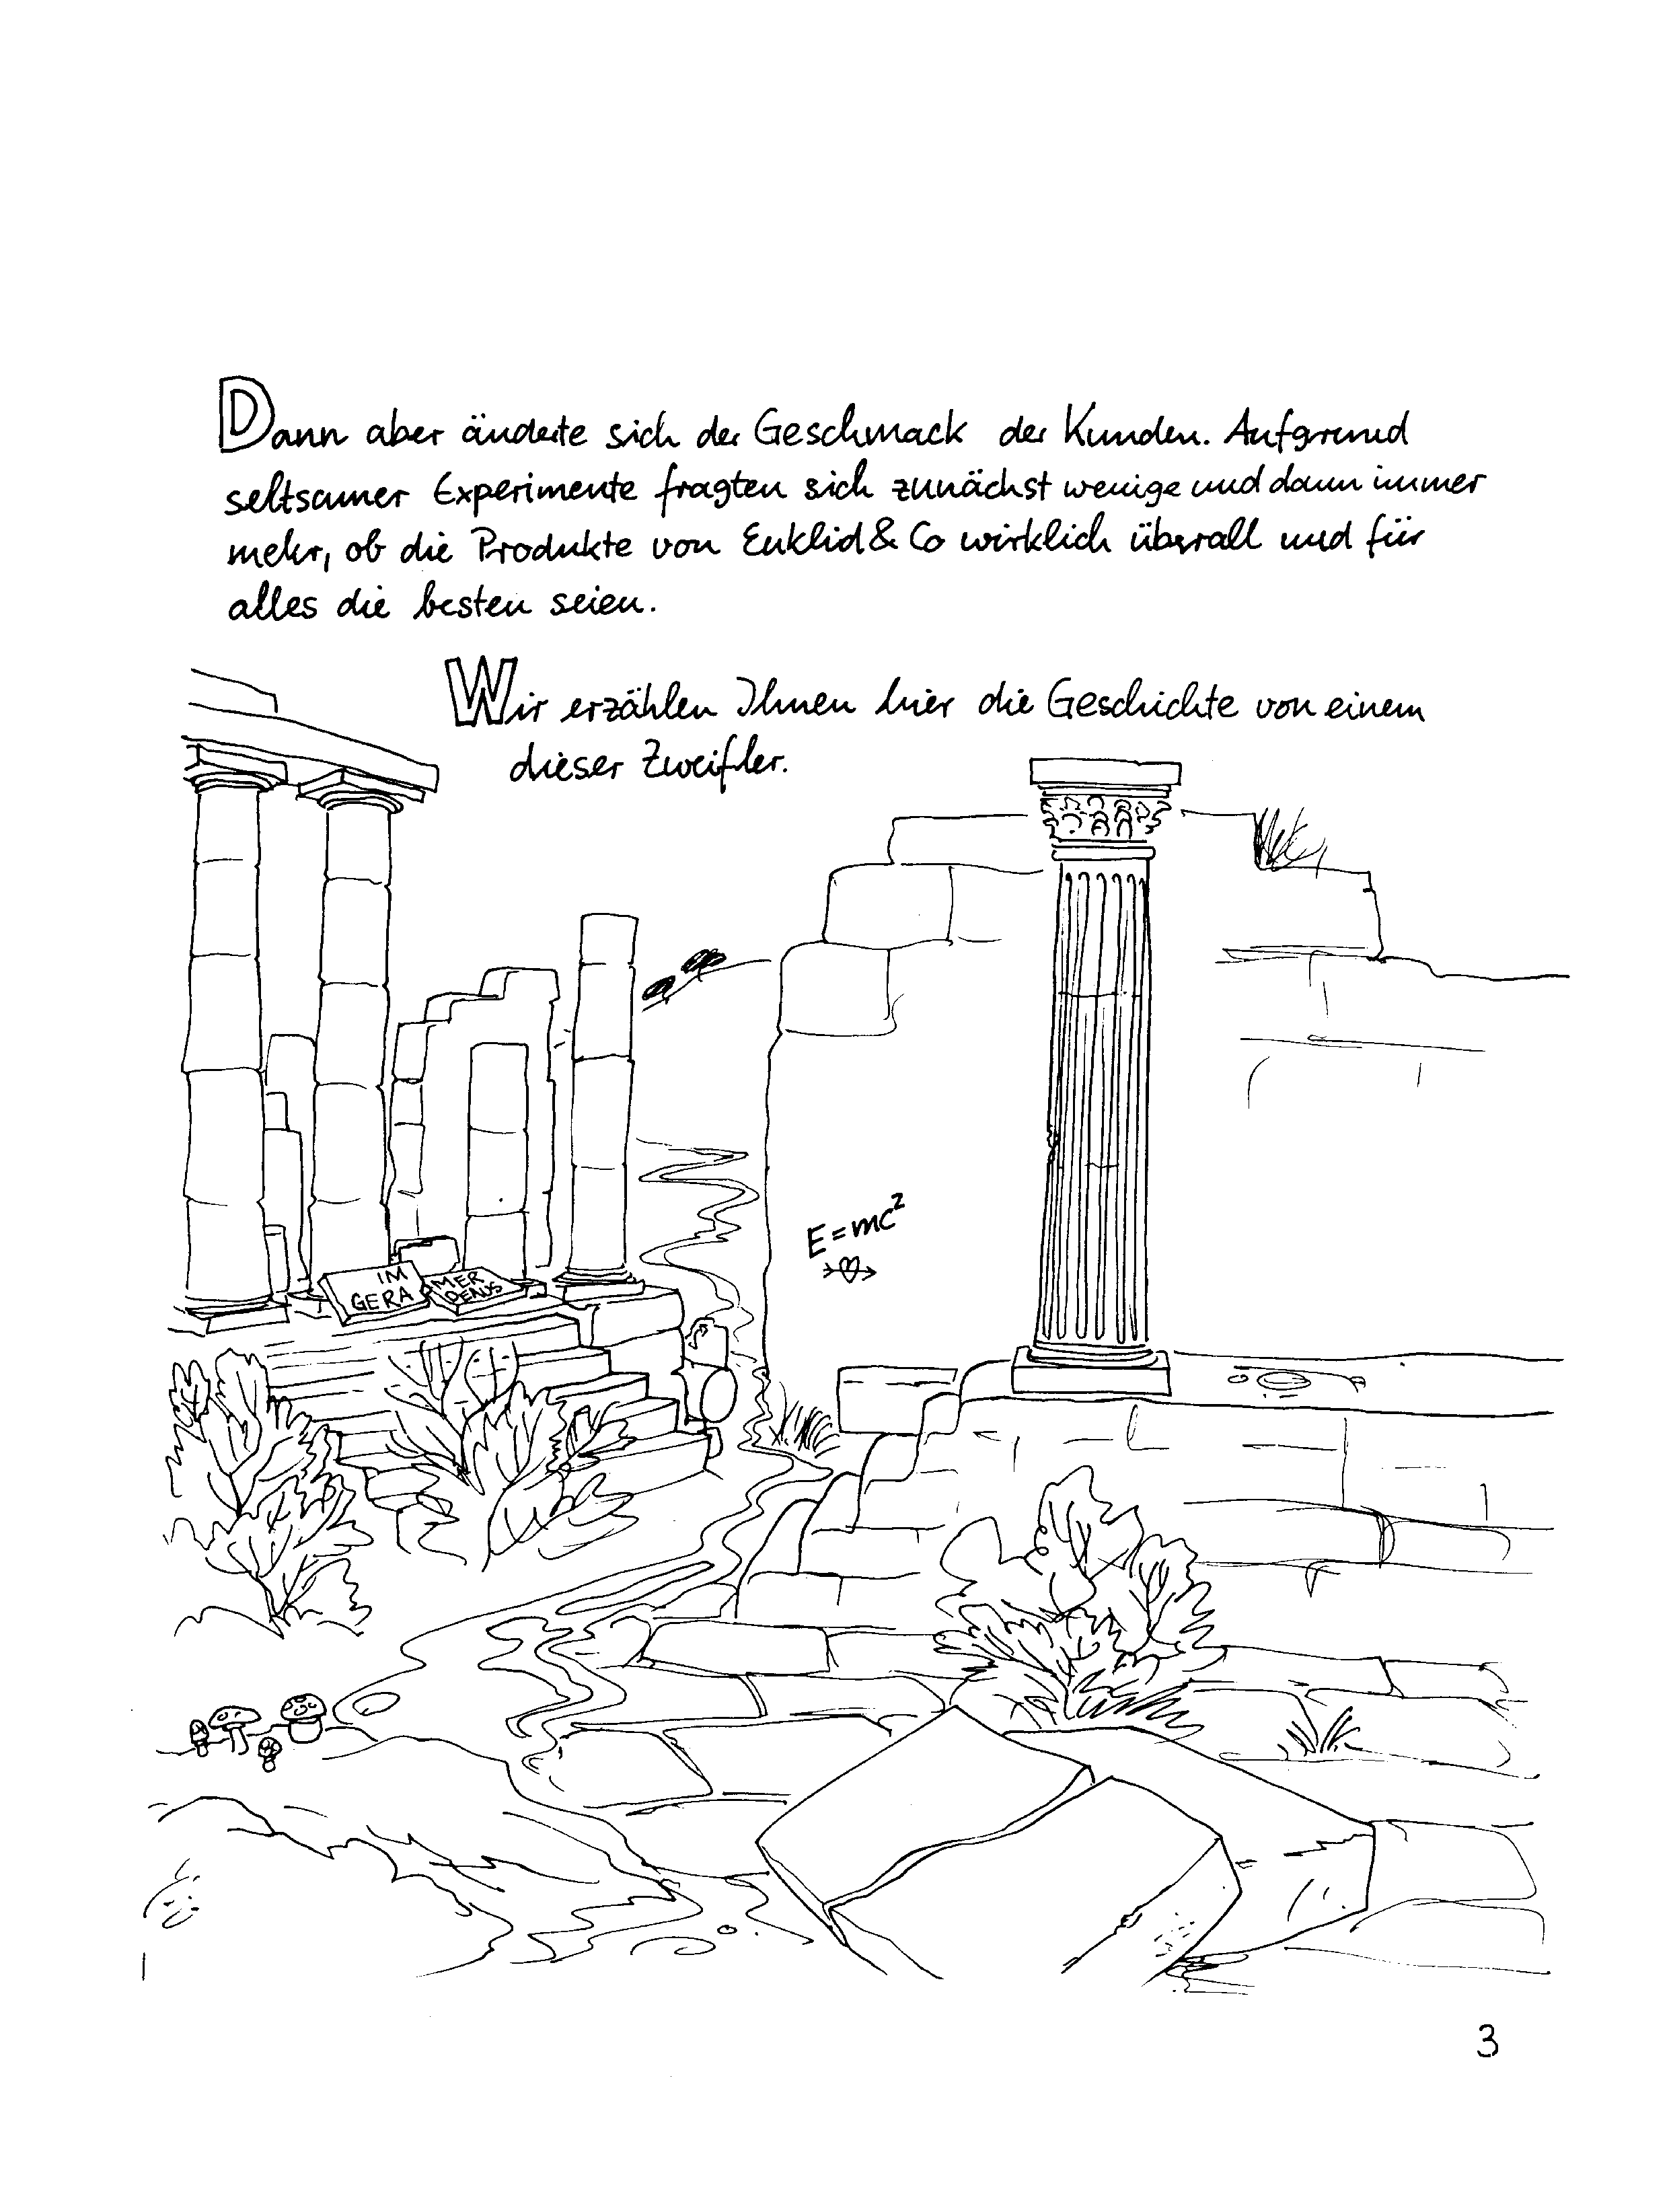 Dann aber änderte sich der Geschmack der Kunden. Aufgrund
seltsamer Experimente fragten sich zunächst wenige und dann immer
mehr, ob die Produkte von Euklid & Co wirklich überall und für
alles die besten seien.
Wir erzählen Ihnen hier die Geschichte von einem
dieser Zweifler.
E=mc²
IM MER
GERA DEAUS
3